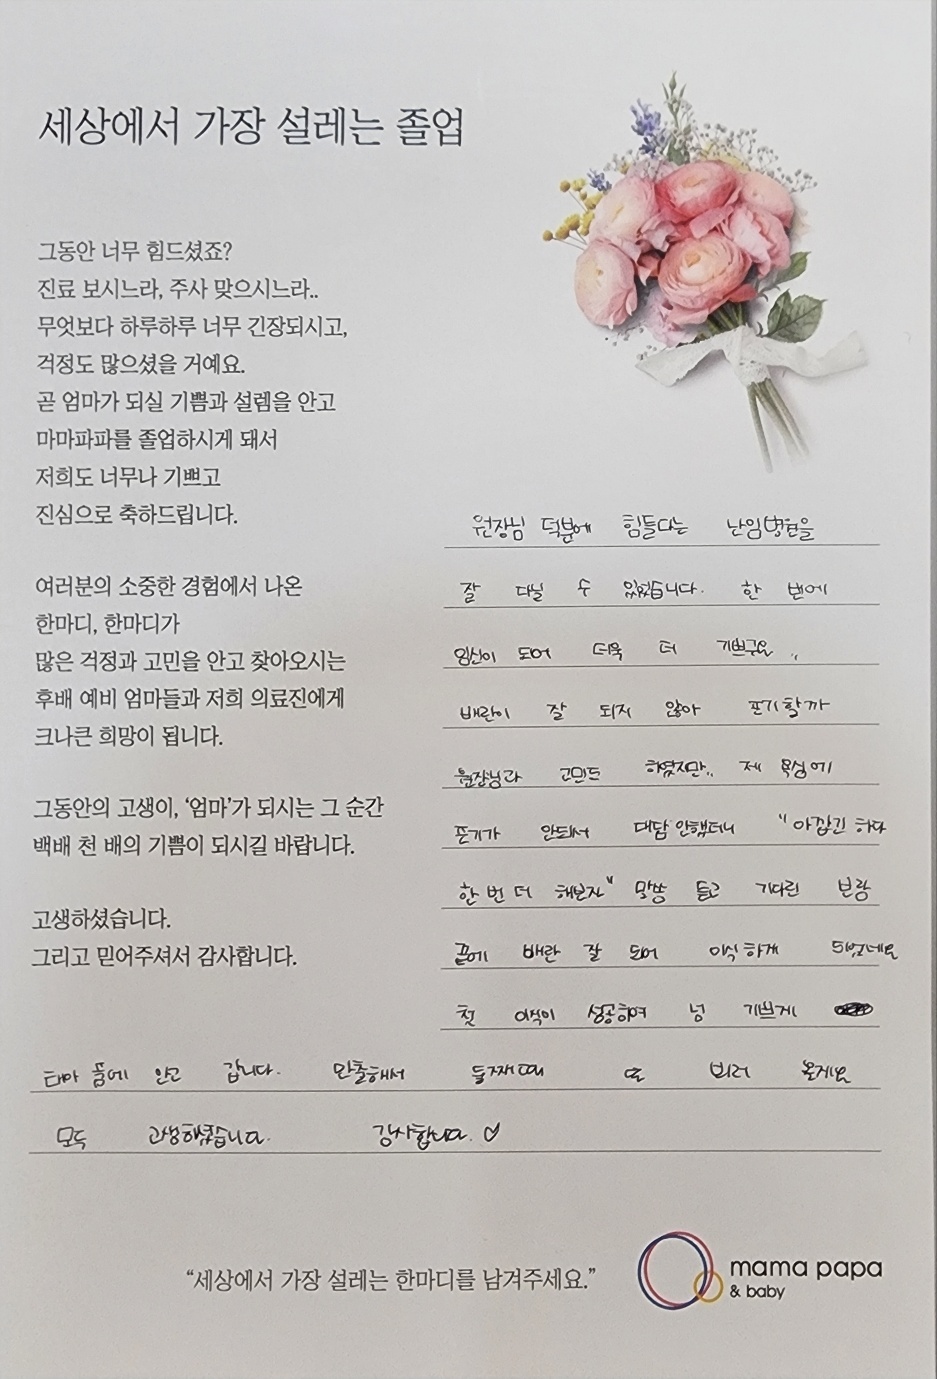 세상에서 가장 설레는 졸업
그동안 너무 힘드셨죠?
진료 보시느라, 주사 맞으시느라..
무엇보다 하루하루 너무 긴장되시고,
걱정도 많으셨을 거예요.
곧 엄마가 되실 기쁨과 설렘을 안고
마마파파를 졸업하시게 돼서
저희도 너무나 기쁘고
진심으로 축하드립니다.
여러분의 소중한 경험에서 나온
한마디, 한마디가
많은 걱정과 고민을 안고 찾아오시는
후배 예비 엄마들과 저희 의료진에게
크나큰 희망이 됩니다.
그동안의 고생이, ‘엄마’가 되시는 그 순간
백배 천 배의 기쁨이 되시길 바랍니다.
고생하셨습니다.
그리고 믿어주셔서 감사합니다.
원장님 덕분에 힘들다는 난임병원을
잘 다닐 수 있었습니다. 한 번에
임신이 되어 더욱 더 기쁘구요..
배란이 잘 되지 않아 포기할까
원장님과 고민도 하였지만.. 제 욕심에
포기가 안되서 대답 안했더니 "아깝긴 하다
한 번 더 해보자" 말씀 듣고 기다린 보람
끝에 배란 잘 되어 이식하게 되었네요
첫 이식이 성공하여 넘 기쁘게
태아 품에 안고 갑니다. 만출해서 둘째때 또 뵈러 올게요
모두 고생하셨습니다. 감사합니다. ♡
“세상에서 가장 설레는 한마디를 남겨주세요.”
mama papa
& baby